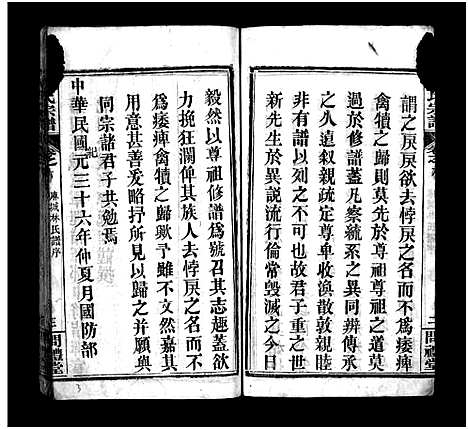 謂之戾戾欲去悖戾之名而不為痿痺
禽犢之歸則莫先於尊祖尊祖之道莫
過於修譜蓋凡察統系之異同辨傳承
之久遠叙親疏定尊卑收渙散敦親睦
非有譜以列之不可也故君子重之世
新先生於異説流行倫常毀滅之今日
毅然以尊祖修譜為號召其志趣蓋欲
力挽狂瀾俾其族人去悖戾之名而不
為痿痺禽犢之歸歟予雖不文然深其
用意甚善爰略抒所見以歸之并願與
同宗諸君子共勉焉
中華民國紀元三十六年仲夏月國防部
氏宗譜
林氏譜序
三
問禮堂